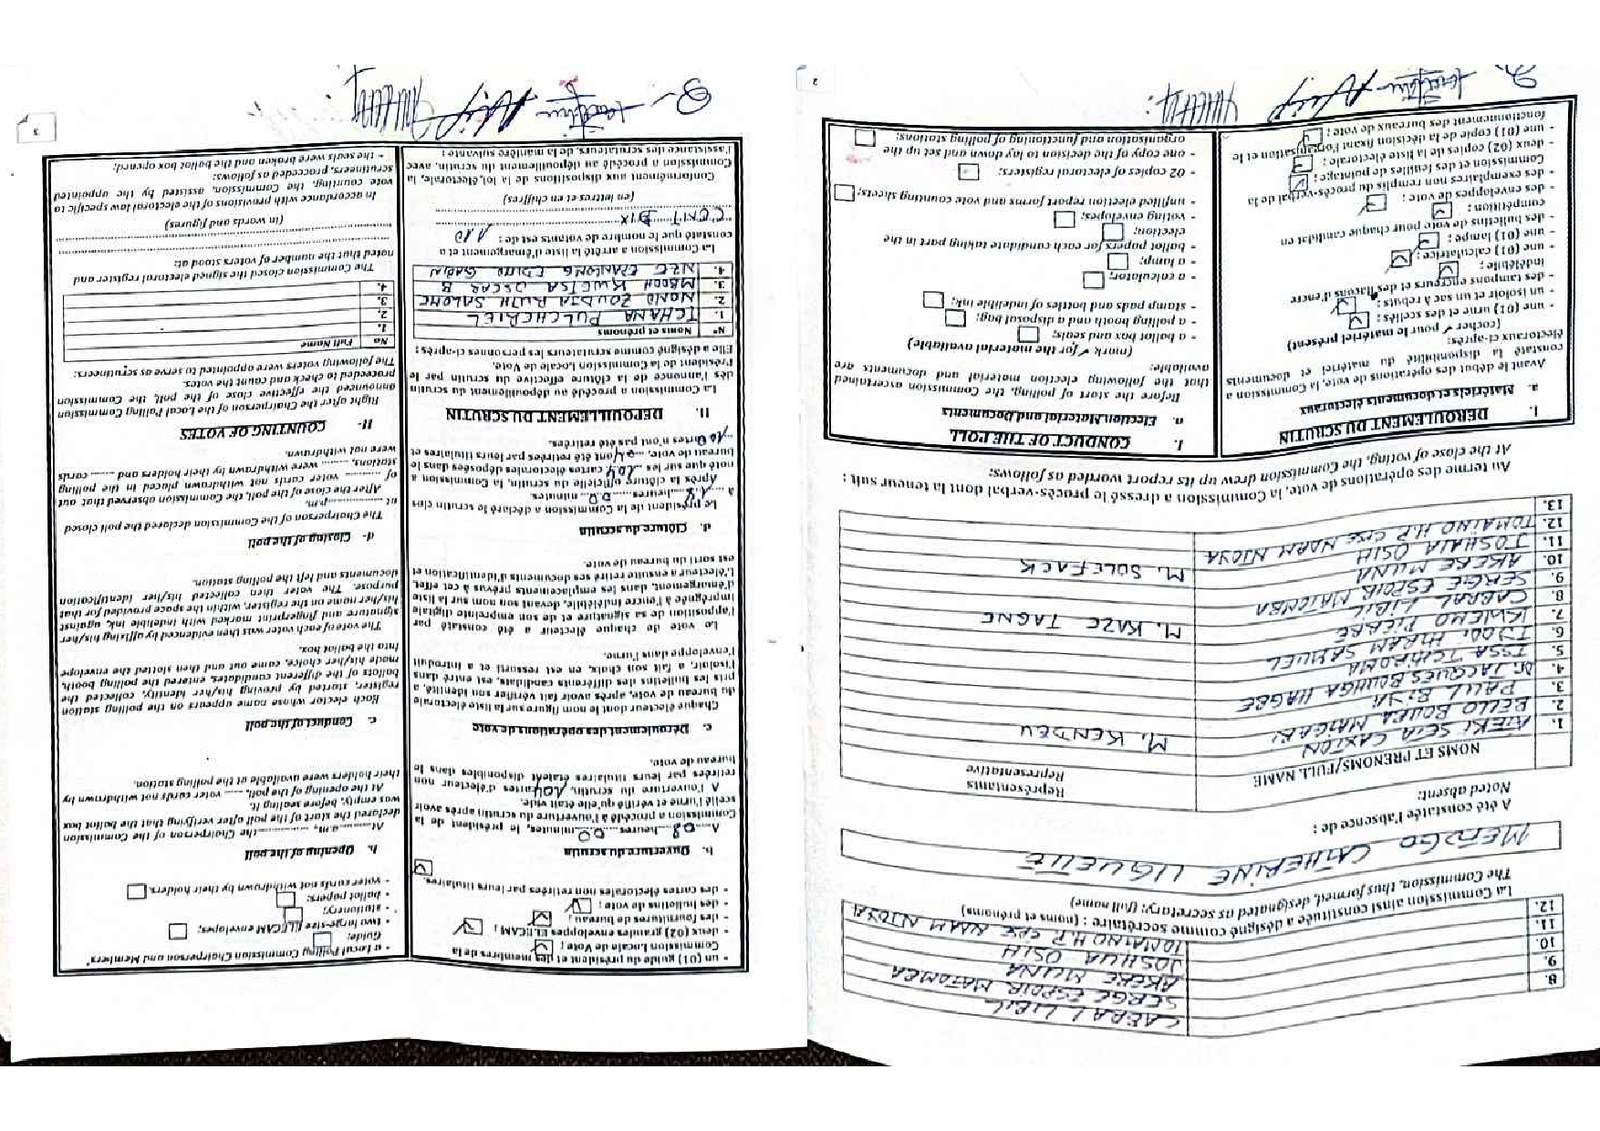 8.
9.
10.
11.
12.
CABRAL LIBII
SERGE ESPOIR MATOMBA
AKERE MUNA
JOSHUA OSIH
TOMAINO H.P. CPSE NDAM NJOYA
La Commission ainsi constituée a désigné comme secrétaire : (noms et prénoms)
The Commission, thus formed, designated as secretary: (full name)
CATHERINE UGUETTE
A été constatée l'absence de :
Noted absent:
NOMS ET PRENOMS/FULL NAME
Représentants
Representative
1. ATEKI SETA CAXTON
2. BELLO BOUBA MAIGARI M. KENDEU
3. PAUL BIYA
4. Dr JACQUES BOUHGA HAGBE
5. ISSA TCHIROMA
6. HIRAM SAMUEL
7. KWEMO PIERRE
8. CABRAL LIBII M. KAZE TAGNE
9. SERGE ESPOIR MATOMBA
10. AKERE MUNA
11. JOSHUA OSIH M. SOLEFACK
12. TOMAINO H.P. CPSE NDAM NJOYA
13.
Au terme des opérations de vote, la Commission a dressé le procès-verbal dont la teneur suit :
At the close of voting, the Commission drew up its report worded as follows:
I. DEROULEMENT DU SCRUTIN
a. Matériels et documents électoraux
Avant le début des opérations de vote, la Commission a
constaté la disponibilité du matériel et documents
électoraux ci-après:
(cocher ✓ pour le matériel présent)
- une (01) urne et des scellés :
- un isoloir et un sac à rebuts :
- des tampons encreurs et des flacons d'encre
indélébile :
- une (01) calculatrice :
- une (01) lampe :
- des bulletins de vote pour chaque candidat en
compétition :
- des enveloppes de vote :
- des exemplaires non remplis du procès-verbal de la
Commission et des feuilles de pointage :
- deux (02) copies de la liste électorale :
- une (01) copie de la décision fixant l'organisation et le
fonctionnement des bureaux de vote :
I. CONDUCT OF THE POLL
a. Election Material and Documents
Before the start of polling, the Commission ascertained
that the following election material and documents are
available:
(mark ✓ for the material available)
- a ballot box and seals;
- a polling booth and a disposal bag;
- stamp pads and bottles of indelible ink;
- a calculator;
- a lamp;
- ballot papers for each candidate taking part in the
election;
- voting envelopes;
- unfilled election report forms and vote counting sheets;
- 02 copies of electoral registers;
- one copy of the decision to lay down and set up the
organisation and functioning of polling stations;
2
- un (01) guide du président et des membres de la
Commission Locale de Vote :
- deux (02) grandes enveloppes ELECAM :
- des fournitures de bureau :
- des bulletins de vote :
- des cartes électorales non retirées par leurs titulaires.
b. Ouverture du scrutin
A 08 heures 00 minutes, le président de la
Commission a procédé à l'ouverture du scrutin après avoir
scellé l'urne et vérifié qu'elle était vide.
A l'ouverture du scrutin, 104 cartes d'électeur non
retirées par leurs titulaires étaient disponibles dans le
bureau de vote.
c. Déroulement des opérations de vote
Chaque électeur dont le nom figure sur la liste électorale
du bureau de vote, après avoir fait vérifier son identité, a
pris les bulletins des différents candidats, est entré dans
l'isoloir, a fait son choix, en est ressorti et a introduit
l'enveloppe dans l'urne.
Le vote de chaque électeur a été constaté par
l'apposition de sa signature et de son empreinte digitale
imprégnée à l'encre indélébile, devant son nom sur la liste
d'émargement, dans les emplacements prévus à cet effet.
L'électeur a ensuite retiré ses documents d'identification et
est sorti du bureau de vote.
d. Clôture du scrutin
Le président de la Commission a déclaré le scrutin clos
à 18 heures 00 minutes.
Après la clôture officielle du scrutin, la Commission a
noté que sur les 104 cartes électorales déposées dans le
bureau de vote, 04 ont été retirées par leurs titulaires et
100 cartes n'ont pas été retirées.
II. DEPOUILLEMENT DU SCRUTIN
La Commission a procédé au dépouillement du scrutin
dès l'annonce de la clôture effective du scrutin par le
Président de la Commission Locale de Vote.
Elle a désigné comme scrutateurs les personnes ci-après :
N° Noms et prénoms
1. TCHANA PULCHERIEL
2. ZOUDJA RUTH SALOME
3. MBOOH KWETSA OSCAR B
4.
La Commission a arrêté la liste d'émargement et a
constaté que le nombre de votants est de : 110
CENT DIX
(en lettres et en chiffres)
Conformément aux dispositions de la loi électorale, la
Commission a procédé au dépouillement du scrutin, avec
l'assistance des scrutateurs, de la manière suivante :
- a Local Polling Commission Chairperson and Members'
Guide;
- two large-size ELECAM envelopes;
- stationery;
- ballot papers;
- voter cards not withdrawn by their holders.
b. Opening of the poll
At ........ a.m, ........ the Chairperson of the Commission
declared the start of the poll after verifying that the ballot box
was empty, before sealing it.
At the opening of the poll, ..... voter cards not withdrawn by
their holders were available at the polling station.
c. Conduct of the poll
Each elector whose name appears on the polling station
register, started by proving his/her identity, collected the
ballots of the different candidates, entered the polling booth,
made his/her choice, came out and then slotted the envelope
into the ballot box.
The vote of each voter was then evidenced by affixing his/her
signature and fingerprint marked with indelible ink, against
his/her name on the register, within the space provided for that
purpose. The voter then collected his/her identification
documents and left the polling station.
d- Closing of the poll
The Chairperson of the Commission declared the poll closed
at ........ p.m.
After the close of the poll, the Commission observed that out
of ........ voter cards not withdrawn placed in the polling
stations, ........ were withdrawn by their holders and ...... cards
were not withdrawn.
II- COUNTING OF VOTES
Right after the Chairperson of the Local Polling Commission
announced the effective close of the poll, the Commission
proceeded to check and count the votes.
The following voters were appointed to serve as scrutineers:
No Full Name
1.
2.
3.
4.
The Commission closed the signed electoral register and
noted that the number of voters stood at:
(in words and figures)
In accordance with provisions of the electoral law specific to
vote counting, the Commission, assisted by the appointed
scrutineers, proceeded as follows:
- the seals were broken and the ballot box opened;
3